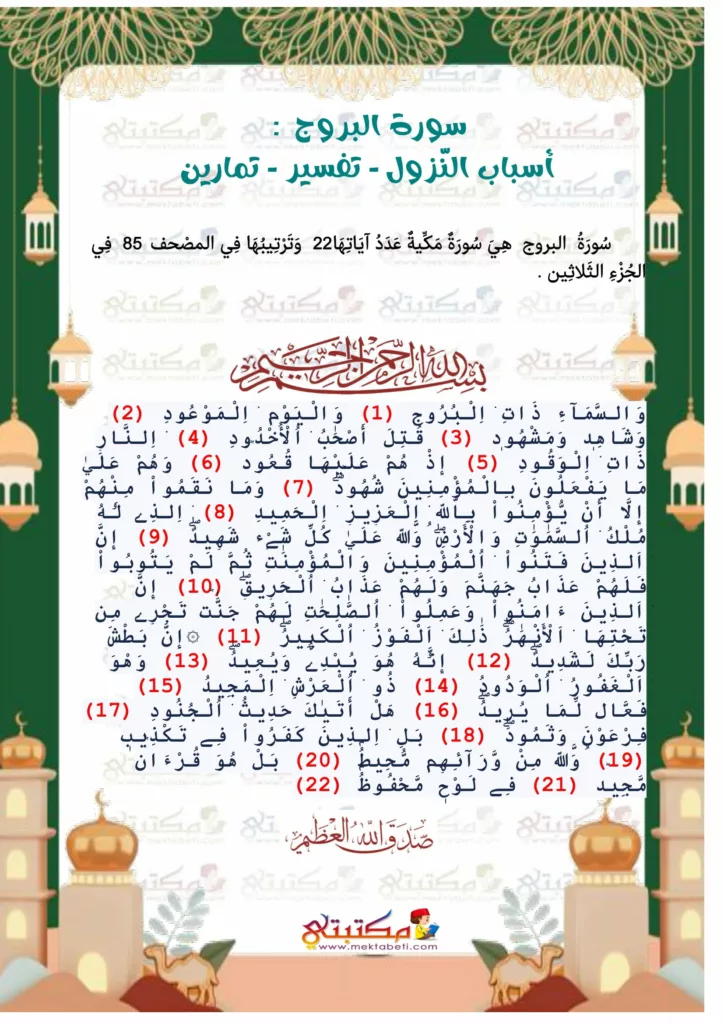 سورة البروج :
أسباب النّزول - تفسير - تمارين
سُورَةُ البروج هِيَ سُورَةٌ مَكِّيةٌ عَدَدُ آيَاتِهَا22 وَتَرْتِيبُهَا فِي المصْحف 85 فِي
الجُزْءِ الثَلاثِين .
بسم الله الرحمن الرحيم
وَالسَّمَآءِ ذَاتِ اِ۬لْبُرُوجِ (1) وَالْيَوْمِ اِ۬لْمَوْعُودِ (2)
وَشَاهِدٖ وَمَشْهُودٖ (3) قُتِلَ أَصْحَٰبُ اُ۬لْأُخْدُودِ (4) اِ۬لنَّارِ
ذَاتِ اِ۬لْوَقُودِ (5) إِذْ هُمْ عَلَيْهَا قُعُودٞ (6) وَهُمْ عَلَيٰ
مَا يَفْعَلُونَ بِالْمُؤْمِنِينَ شُهُودٞۖ (7) وَمَا نَقَمُواْ مِنْهُمْ
إِلَّا أَنْ يُّؤْمِنُواْ بِاللَّهِ اِ۬لْعَزِيزِ اِ۬لْحَمِيدِ (8) اِ۬لذِے لَهُۥ
مُلْكُ اُ۬لسَّمَٰوَٰتِ وَالْأَرْضِۖ وَاللَّهُ عَلَيٰ كُلِّ شَےْءٖ شَهِيدٌۖ (9) إِنَّ
اَ۬لذِينَ فَتَنُواْ اُ۬لْمُؤْمِنِينَ وَالْمُؤْمِنَٰتِ ثُمَّ لَمْ يَتُوبُواْ
فَلَهُمْ عَذَابُ جَهَنَّمَ وَلَهُمْ عَذَابُ اُ۬لْحَرِيقِۖ (10) إِنَّ
اَ۬لذِينَ ءَامَنُواْ وَعَمِلُواْ اُ۬لصَّٰلِحَٰتِ لَهُمْ جَنَّٰتٞ تَجْرِے مِن
تَحْتِهَا اَ۬لْأَنْهَٰرُۖ ذَٰلِكَ اَ۬لْفَوْزُ اُ۬لْكَبِيرُۖ (11) ۞إِنَّ بَطْشَ
رَبِّكَ لَشَدِيدٌۖ (12) إِنَّهُۥ هُوَ يُبْدِئُ وَيُعِيدُۖ (13) وَهُوَ
اَ۬لْغَفُورُ اُ۬لْوَدُودُ (14) ذُو اُ۬لْعَرْشِ اِ۬لْمَجِيدُ (15)
فَعَّالٞ لِّمَا يُرِيدُۖ (16) هَلْ أَتَيٰكَ حَدِيثُ اُ۬لْجُنُودِ (17)
فِرْعَوْنَ وَثَمُودَۖ (18) بَلِ اِ۬لذِينَ كَفَرُواْ فِے تَكْذِيبٖ
(19) وَاللَّهُ مِنْ وَّرَآئِهِم مُّحِيطُۢ (20) بَلْ هُوَ قُرْءَانٞ
مَّجِيدٞ (21) فِے لَوْحٖ مَّحْفُوظٞ (22)
صدق الله العظيم
مكتبتي
www.mektabeti.com